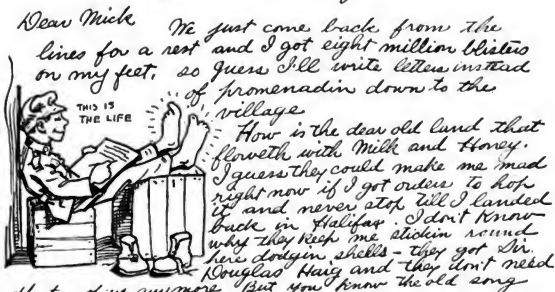 Dear Mick
We just come back from the
lines for a rest and I got eight million blisters
on my feet, so guess I'll write letters instead
of promenadin down to the
village
THIS IS
THE LIFE
How is the dear old land that
floweth with Milk and Honey.
I guess they could make me mad
right now if I got orders to hop
it and never stop till I landed
back in Halifax. I don't know
why they keep me stickin round
here dodgin shells - they got Sir
Douglas Haig and they don't need
anymore But you know the old song